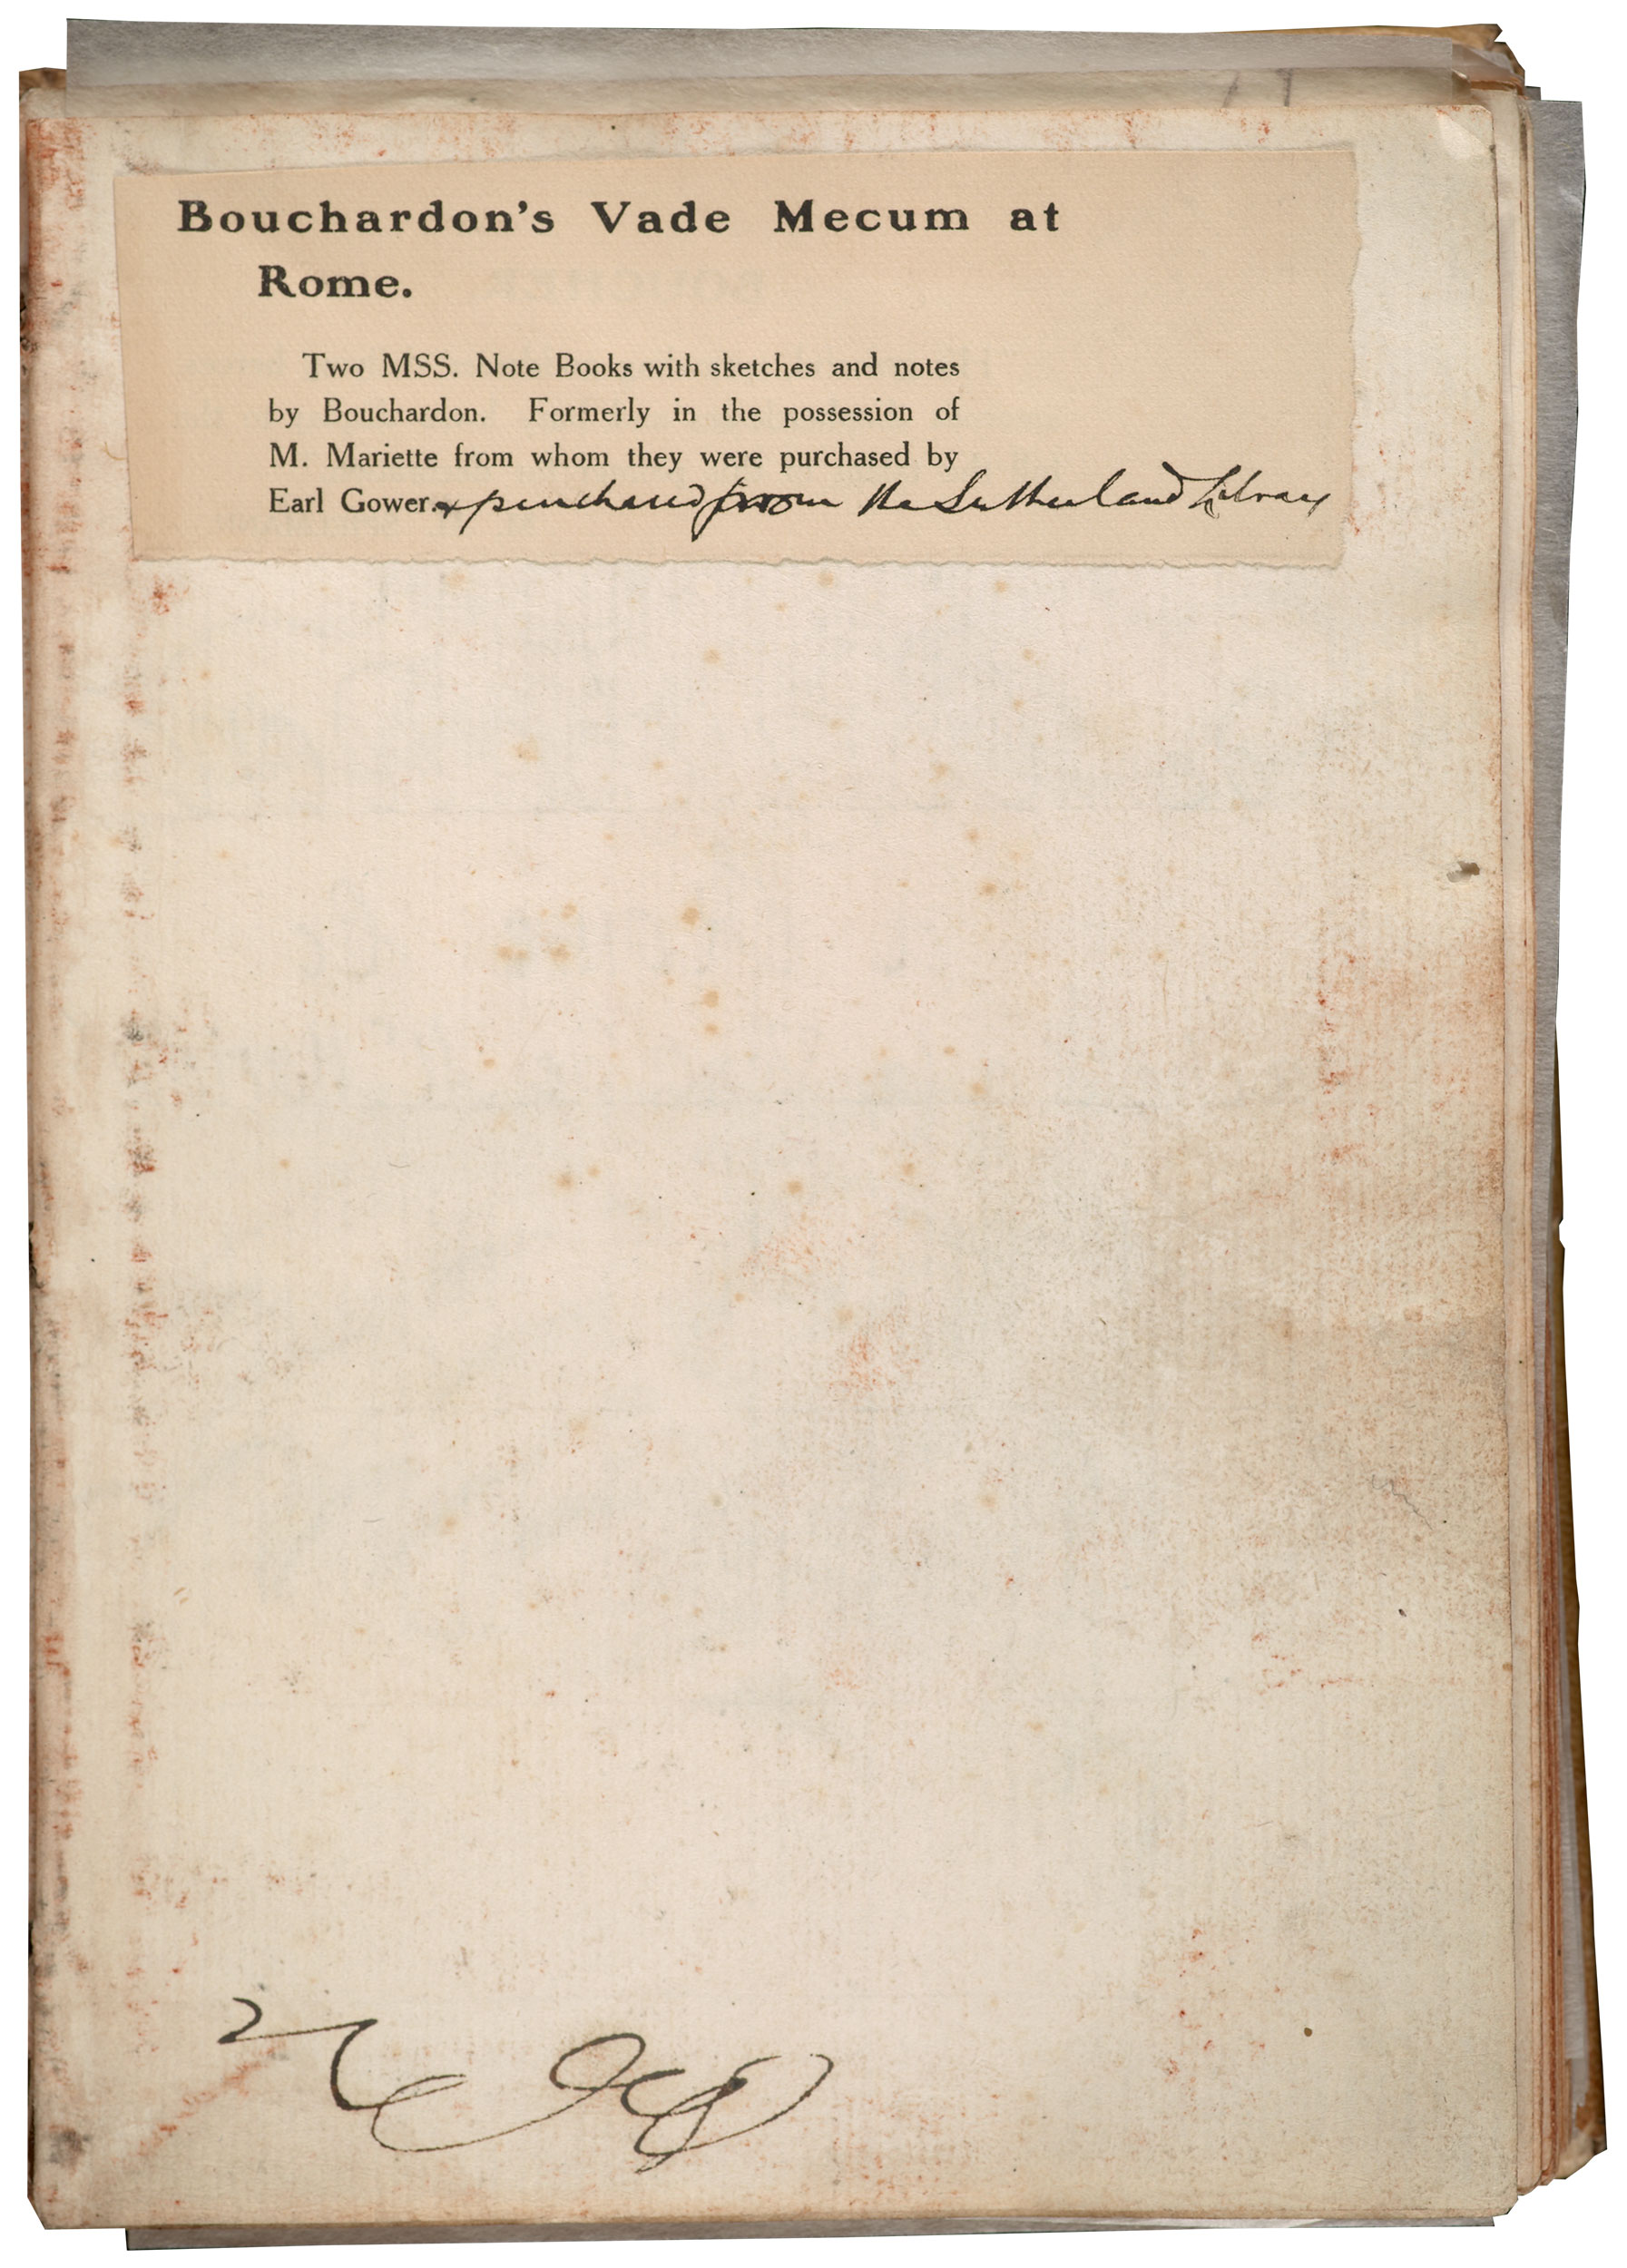 Bouchardon's Vade Mecum at
Rome.
Two MSS. Note Books with sketches and notes
by Bouchardon. Formerly in the possession of
M. Mariette from whom they were purchased by
Earl Gower. & purchased from the Sutherland Library